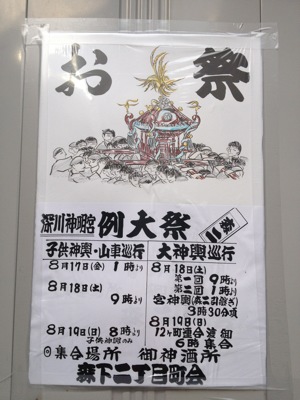 お祭
深川神明宮 例大祭
森二
子供神輿・山車巡行
8月17日(金) 1時より
8月18日(土)
9時より
8月19日(日) 8時より
子供神輿のみ
大神輿巡行
8月18日(土)
第一回 9時より
第二回 1時より
宮神輿(森二引継ぎ)
3時30分頃
8月19日(日)
12ヶ町連合渡御
6時集合
◎集合場所 御神酒所
森下二丁目町会